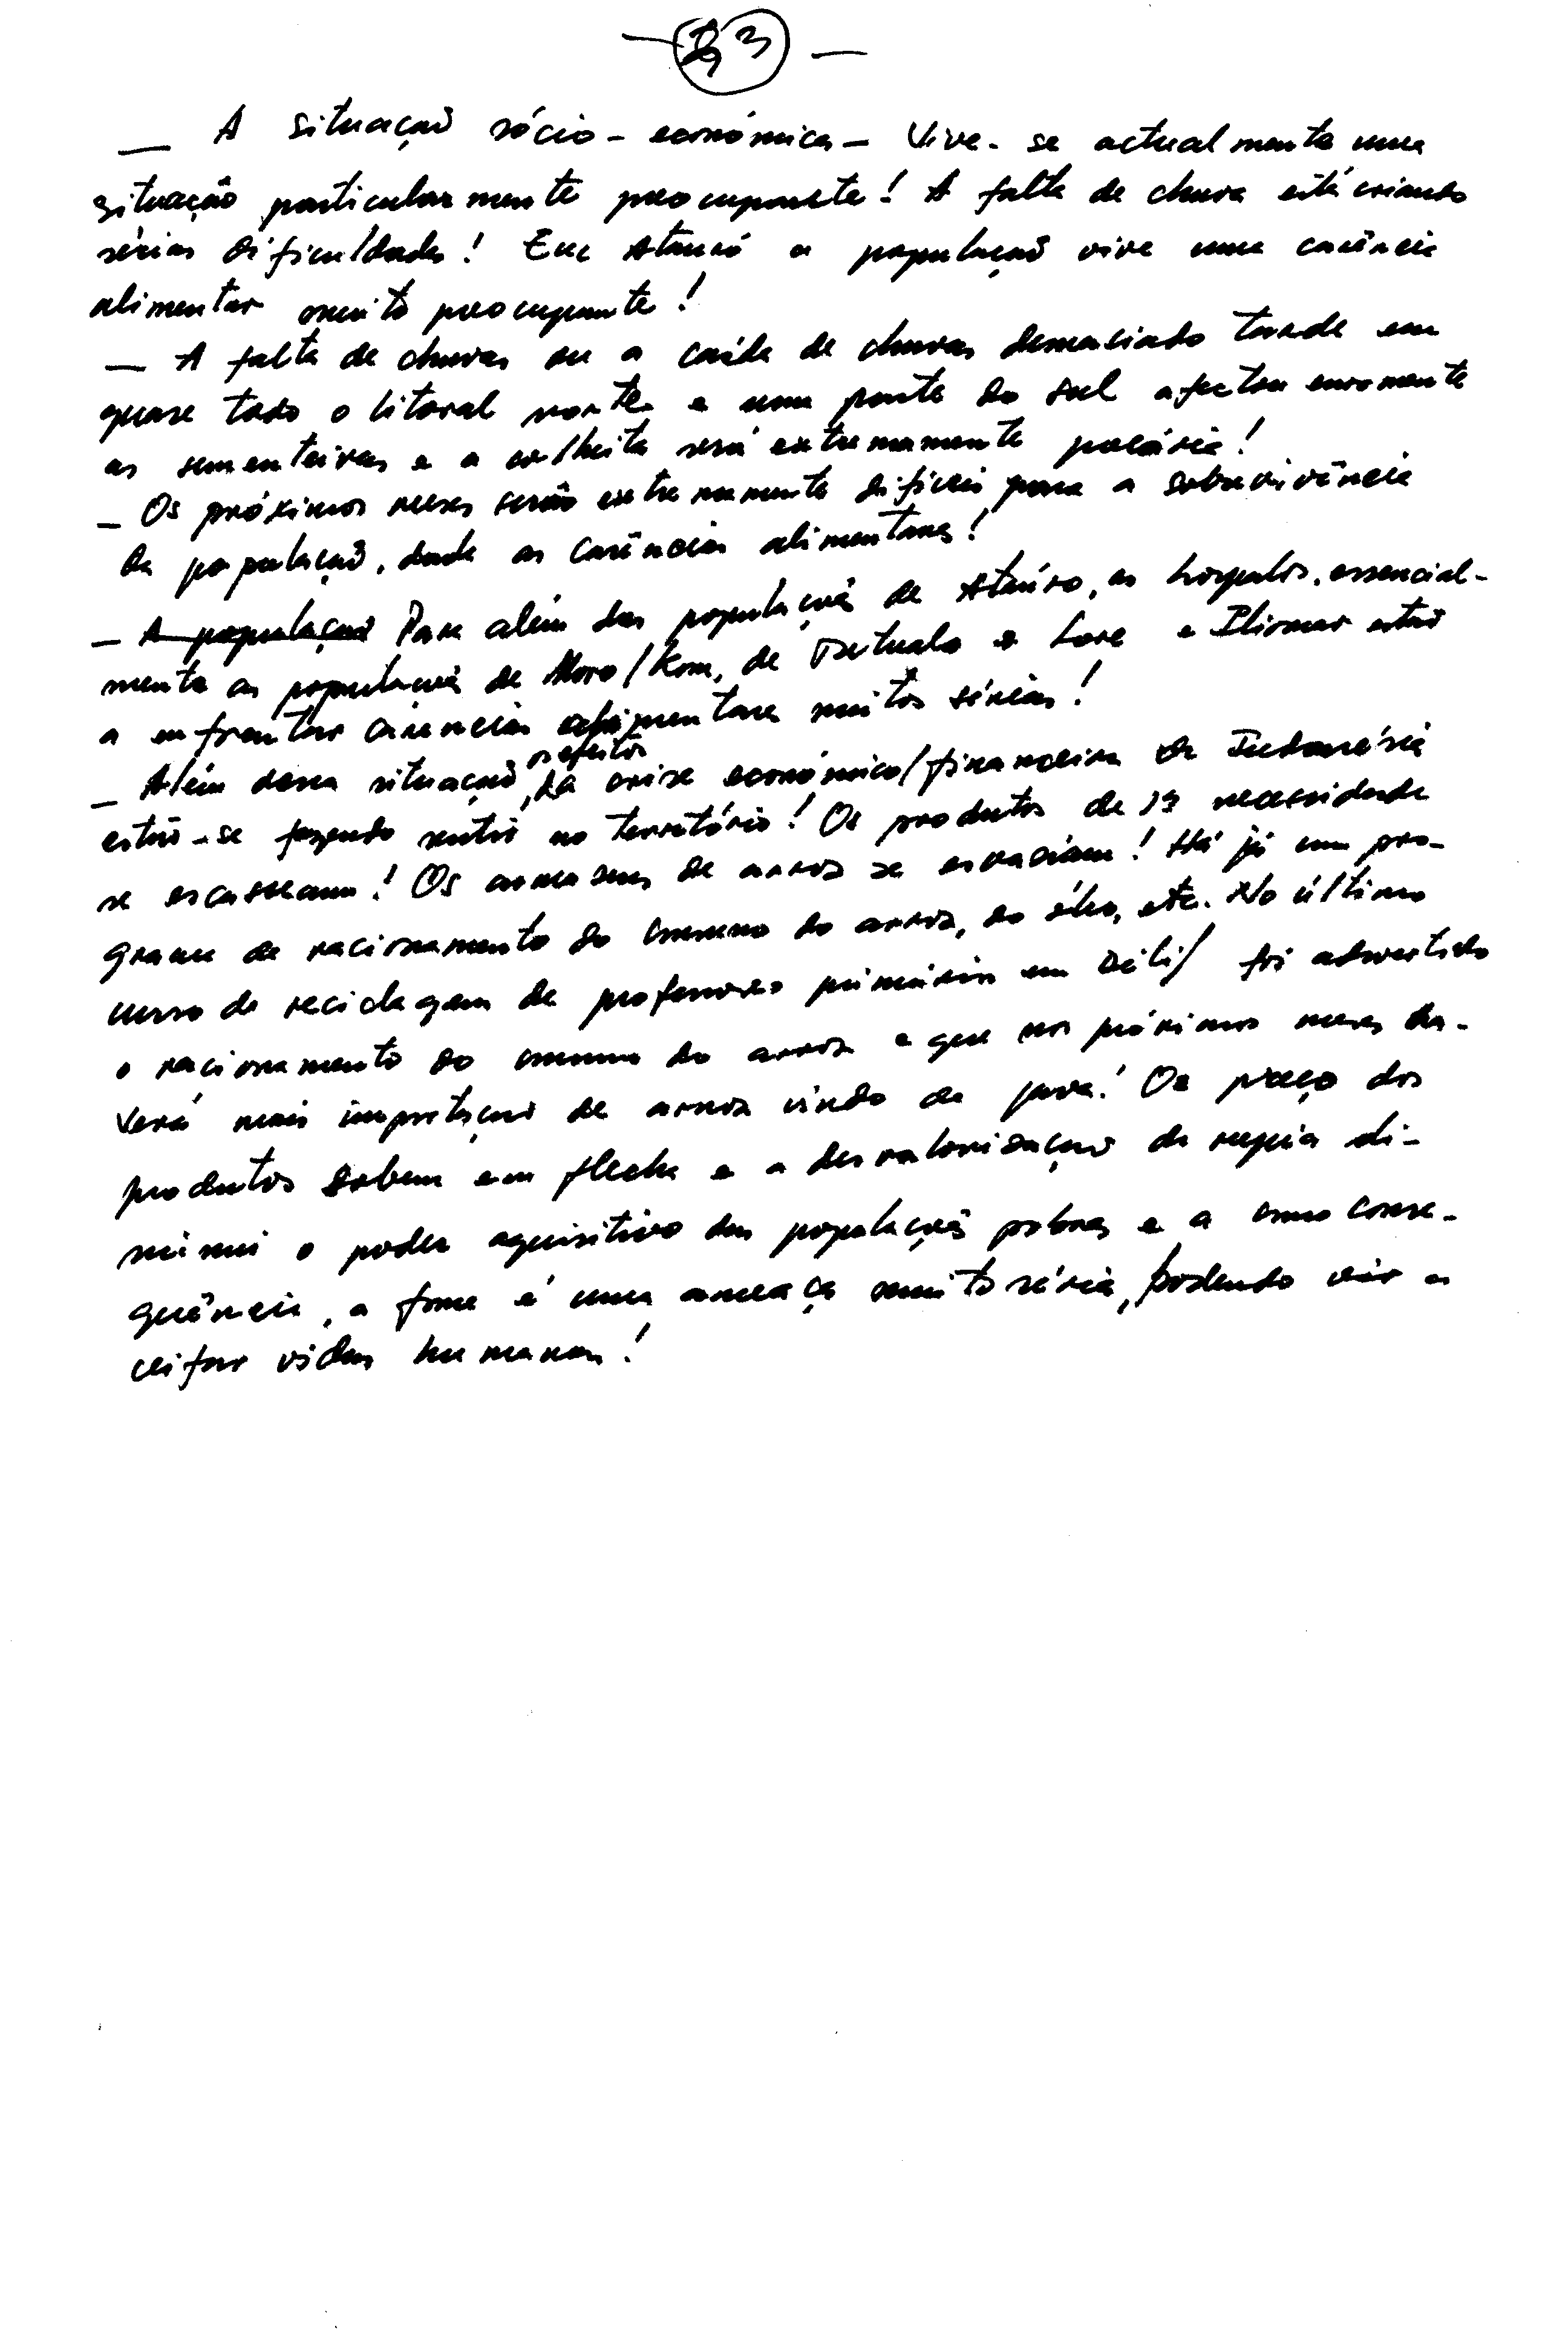 — 23 —
— A situação sócio-económica — Vive-se actualmente uma
situação particularmente preocupante! A falta de chuva está criando
sérias dificuldades! Em Ataúro a população vive uma carência
alimentar muito preocupante!
— A falta de chuvas ou a caída de chuvas demasiado tarde em
quase todo o litoral norte e uma parte do sul afectou enormente
as sementeiras e a colheita será extremamente precária!
— Os próximos meses serão extremamente difíceis para a sobrevivência
da população, dada as carências alimentares!
— A população Para além das populações de Ataúro, as essencial-
mente as populações de Moro/Kom, de e Lore e Iliomar estão
a enfrentar carências alimentares muitos sérias!
— Além dessa situação, os efeitos da crise económico/financeira da Indonésia
estão-se fazendo sentir no território! Os produtos de 1ª necessidade
se escasseam! Os armazens de arroz se esvaziam! Há já um pro-
grama de racionamento do consumo do arroz, do óleo, etc. No último
curso de reciclagem de professores primários em Díli/ foi advertido
o racionamento do consumo do arroz e que nos próximos meses ha-
verá mais importação de arroz vindo de Java! Os preço dos
produtos sobem em flecha e a desvalorização da rupia di-
minui o poder aquisitivo das populações pobres e a como conse-
quência, a fome é uma ameaça muito séria, podendo vir a
ceifar vidas humanas!